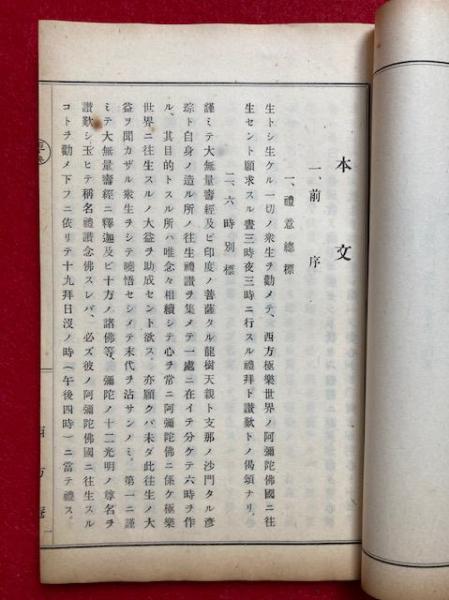 本文
一、前序
一、禮意總標
生トシ生ケル一切ノ衆生ヲ勸メテ、西方極樂世界ノ阿彌陀佛國ニ往
生セント願求スル晝三時夜三時ニ行スル禮拜ト讃歎トノ偈頌ナリ。
二、六時別標
謹ミテ大無量壽經及ビ印度ノ菩薩タル龍樹天親ト支那ノ沙門タル彦
琮ト自身ノ造ル所ノ往生禮讃ヲ集メテ一處ニ在イテ分ケテ六時ヲ作
ル、其目的トスル所ハ唯念々相續シテ心ヲ常ニ阿彌陀佛ニ係ケ極樂
世界ニ往生スルノ大益ヲ助成セント欲ス。亦願クバ未ダ此往生ノ大
益ヲ聞カザル衆生ヲシテ曉悟セシメテ末代ヲ沾サンノミ。第一ニ謹
ミテ大無量壽經ニ釋迦及ビ十方ノ諸佛等、彌陀ノ十二光明ノ尊名ヲ
讃歎シ玉ヒテ稱名禮讃念佛スレバ、必ズ彼ノ阿彌陀佛國ニ往生スル
コトヲ勸メ下フニ依リテ十九拜日沒ノ時（午後四時）ニ當テ禮ス。